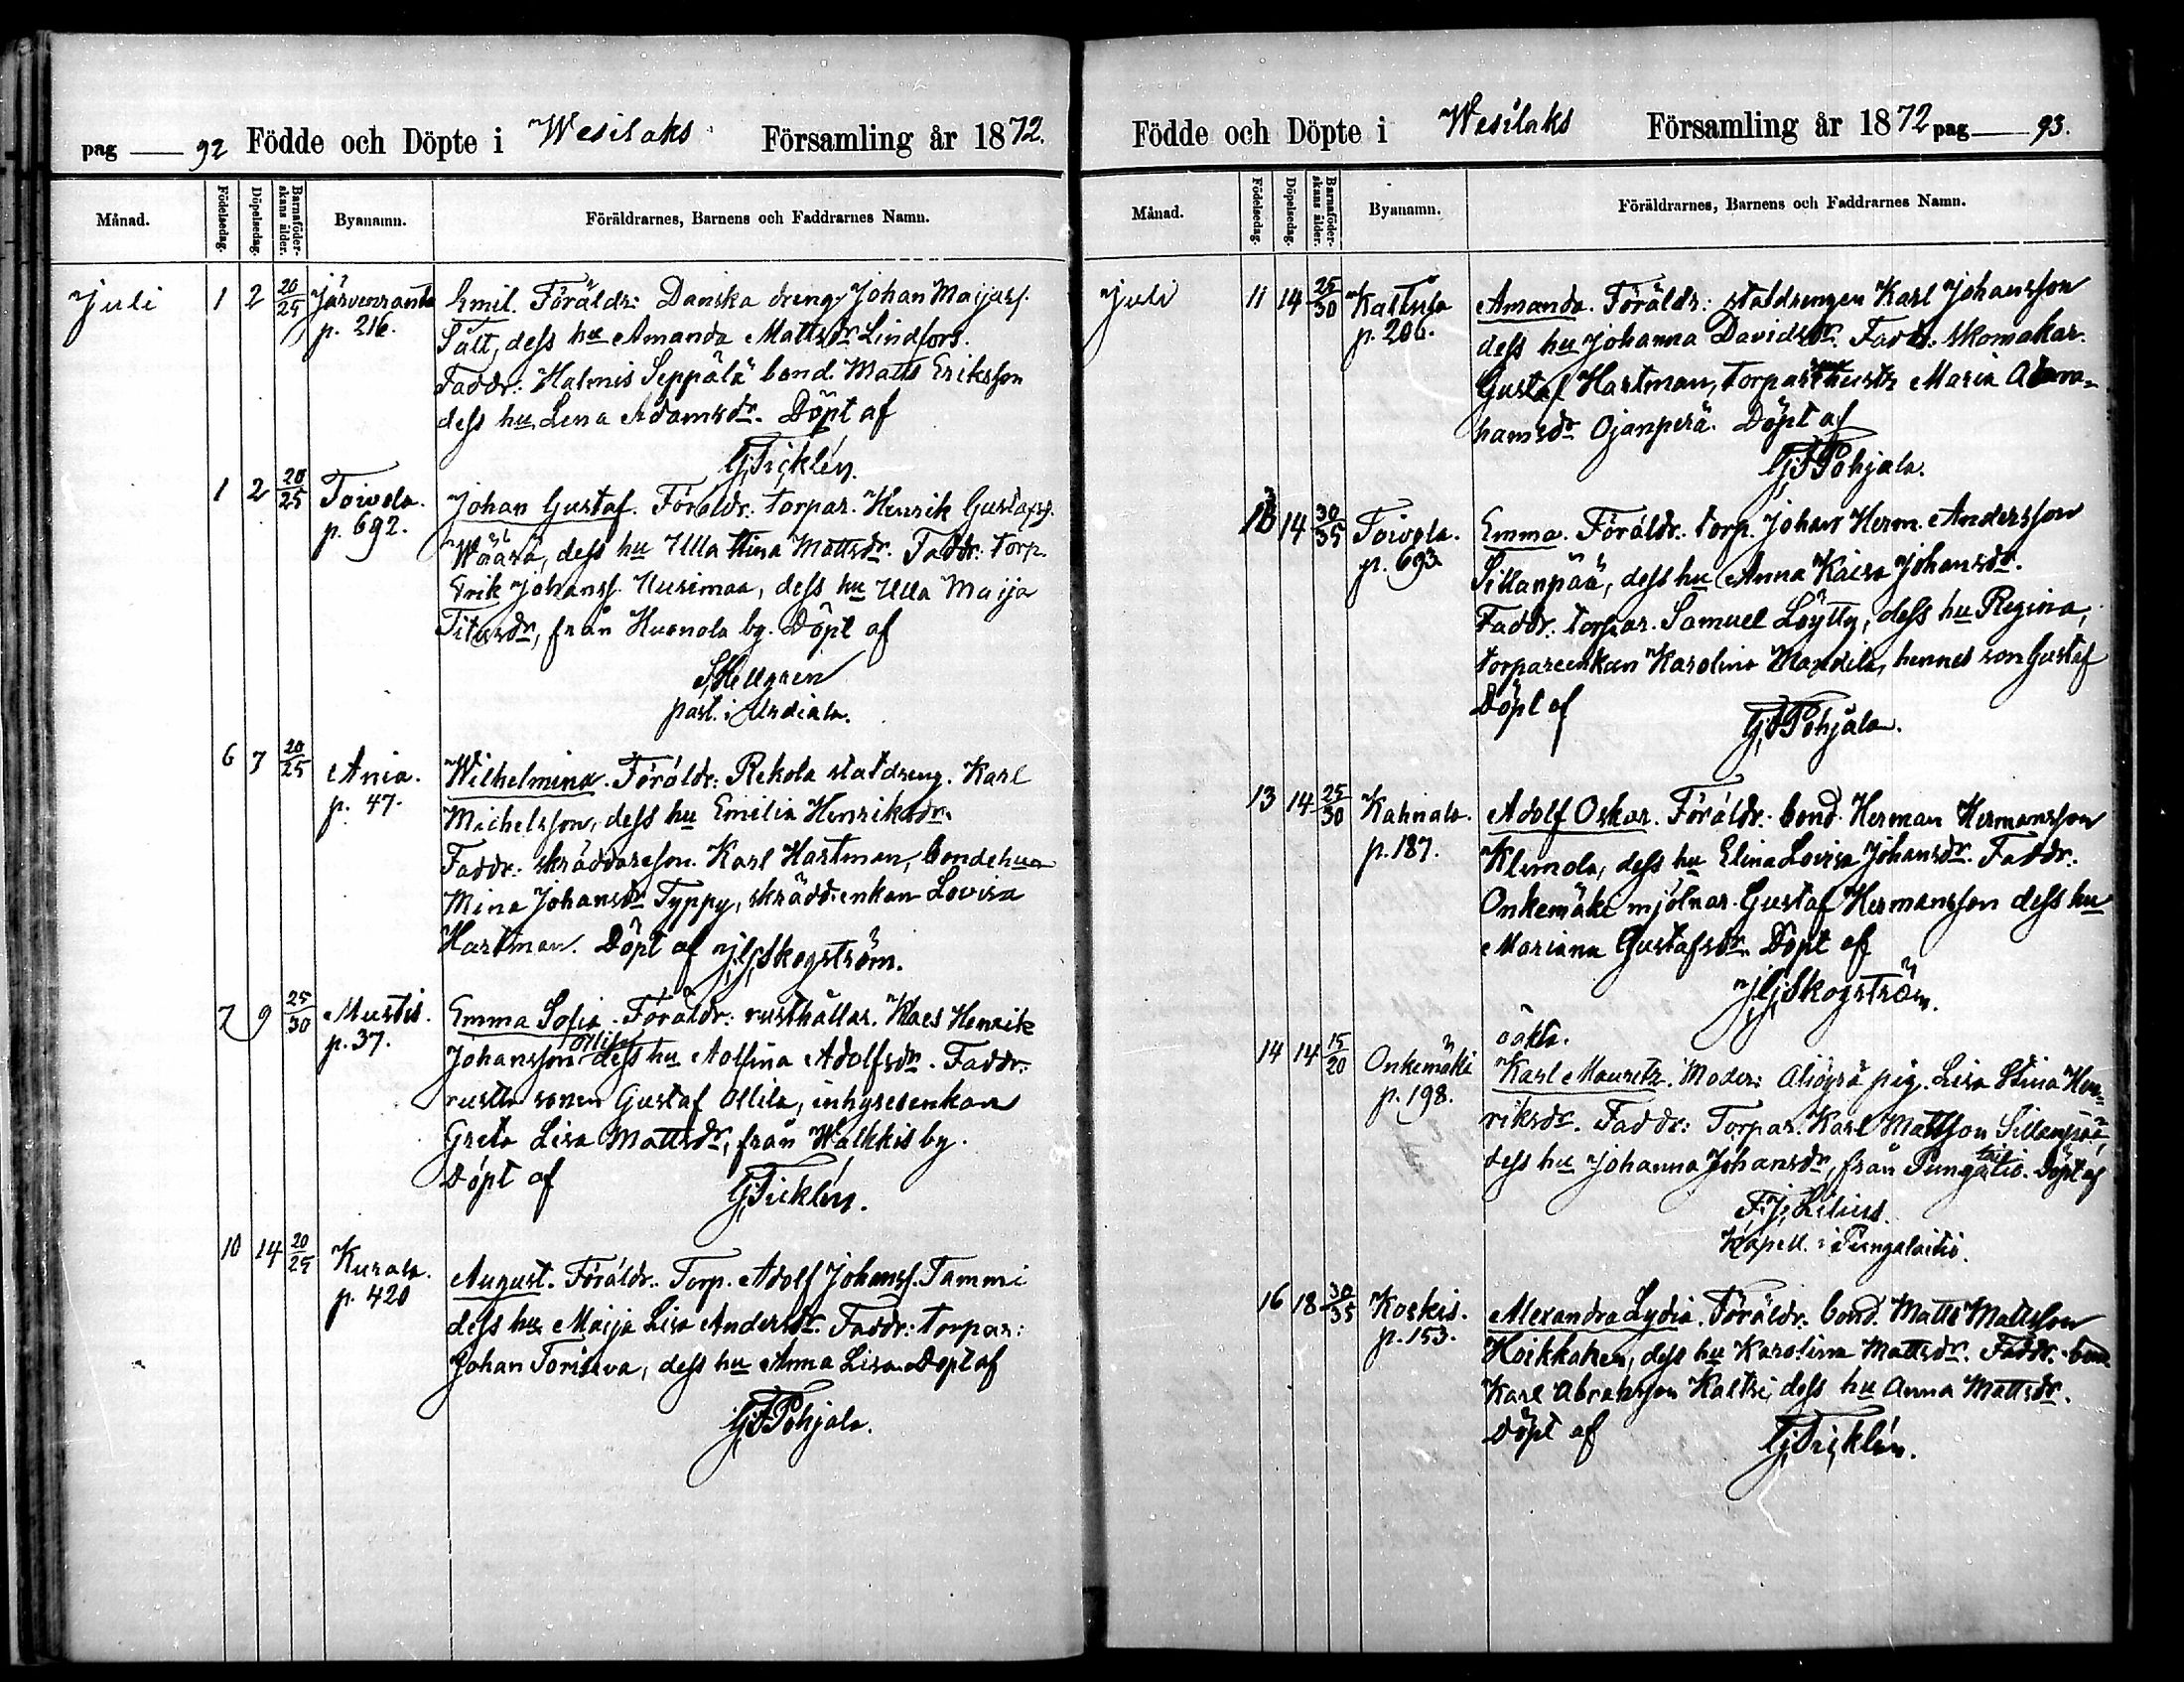 pag 92 Födde och Döpte i Wesilaks Församling år 1872.
Månad. Födelsedag. Döpelsedag. Barnaföderskans ålder. Byanamn. Föräldrarnes, Barnens och Faddrarnes Namn.
Juli 1 2 20/25 Järvenranta p. 216.
Emil. Föräldr: Danska dreng. Johan Maijass.
Sält, dess hu Amanda Mattsdr Lindfors.
Faddr: Halmis Seppälä bond. Matts Eriksson
dess hu Lena Adamsdr. Döpt af
G,Ficklén.
1 2 20/25 Toivola. p. 692.
Johan Gustaf. Föräldr: torpar. Henrik Gustafss.
Wäärä, dess hu Ulla Stina Mattsdr. Faddr: torp.
Erik Johanss. Uusimaa, dess hu Ulla Maija
Titusdr, från Huonola by. Döpt af
S,Hellgren
past. i Urdiala.
6 7 20/25 Ania. p. 47.
Wilhelmina. Föräldr: Rekola statdreng. Karl
Michelsson, dess hu Emilia Henriksdr.
Faddr: skräddareson. Karl Hartman, bondehu
Mina Johansdr Typpy, skrädd:enkan Lovisa
Hartman. Döpt af J,G,Skogström.
7 9 25/30 Mustis. p. 37.
Emma Sofia. Föräldr: rusthållar. Klaes Henrik
Johansson Ollila dess hu Adolfina Adolfsdr. Faddr:
rusth sonen Gustaf Ollila, inhysesenkan
Greta Lisa Mattsdr, från Walkkis by.
Döpt af
G,Ficklén.
10 14 20/25 Kurala. p. 420
August. Föräldr: Torp. Adolf Johanss. Tammi
dess hu Maija Lisa Andersdr. Faddr: torpar:
Johan Toriseva, dess hu Anna Lisa. Döpt af
G,F,Pohjala.
Födde och Döpte i Wesilaks Församling år 1872 pag 93.
Månad. Födelsedag. Döpelsedag. Barnaföderskans ålder. Byanamn. Föräldrarnes, Barnens och Faddrarnes Namn.
Juli 11 14 25/30 Kaltsila p. 206.
Amanda. Föräldr: statdrengen Karl Johansson
dess hu Johanna Davidsdr. Faddr. skomakar.
Gustaf Hartman, torparehustr Maria
hamsdr Ojanperä. Döpt af
G,F,Pohjala.
13 14 30/35 Toivola. p. 693
Emma. Föräldr: torp. Johan Herm. Andersson
Sillanpää, dess hu Anna Kaisa Johansdr.
Faddr: torpar. Samuel Löytty, dess hu Regina,
torpareenkan Karolina Mandila, hennes son Gustaf
Döpt af
G,F,Pohjala.
13 14 25/30 Kahnala. p. 187.
Adolf Oskar. Föräldr: bond. Herman Hermansson
Klemola, dess hu Elina Lovisa Johansdr. Faddr:
Onkemäki mjölnar. Gustaf Hermansson dess hu
Mariana Gustafsdr. Döpt af
J,G,Skogström.
oäkta.
14 14 15/20 Onkemäki p. 198.
Karl Mauritz. Moder: Aliögrä pig. Lisa Stina Hen-
riksdr. Faddr: Torpar. Karl Mattson Sillanpää,
dess hu Johanna Johansdr, från Pungalaitio. Döpt af
F.J. Lilius.
Kapell. i Pungalaitio.
16 18 30/35 Koskis. p. 153.
Alexandra Lydia. Föräldr: bond. Matts Mattsson
Hoikkanen, dess hu Karolina Mattsdr. Faddr. bond
Karl Abrahsson Kaltsi, dess hu Anna Mattsdr.
Döpt af
G,Ficklén.